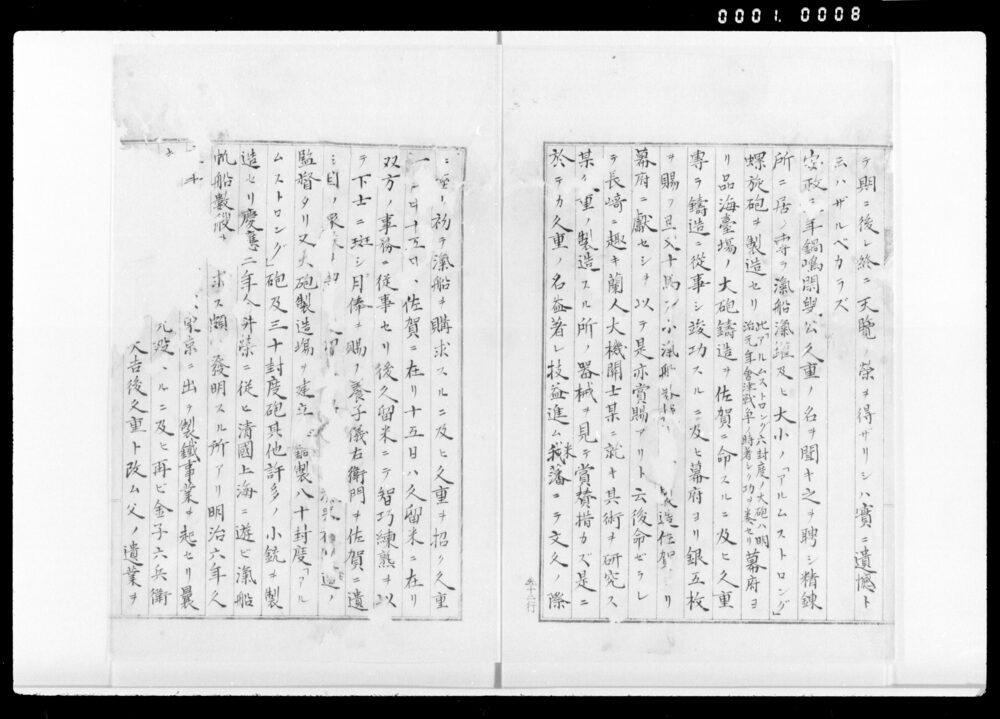 0001.0008
ヲ期ニ後レ終ニ天覽ノ榮ヲ得ザリシハ實ニ遺憾ト
云ハザルベカラズ
安政二年鍋嶋閑叟公久重ノ名ヲ聞キ之ヲ聘シ精錬
所ニ居ラ專ラ滊船滊鑵及ヒ大小ノ「アルムストロング」
螺旋砲ヲ製造セリ此アルムストロング六封度ノ大砲ハ明治元年會津戦争ノ時著シク功ヲ奏セリ幕府ヨ
リ品海臺場ノ大砲鑄造ヲ佐賀ニ命スルニ及ヒ久重
專ラ鑄造ニ從事シ竣功スルニ及ヒ幕府ヨリ銀五枚
ヲ賜フ且又十馬力ノ小滊船 造佐賀 リ
幕府ニ獻セシヲ以テ是亦賞賜アリト云後命ゼラレ
テ長﨑ニ趣キ蘭人大機関士某ニ就キ其術ヲ研究ス
某久重ノ製造スル所ノ器械ヲ見テ賞賛措カズ是ニ
於テカ久重ノ名益著レ技益進ム米藩ニテ文久ノ際
ニ至リ初テ滊船ヲ購求スルニ及ヒ久重ヲ招ク久重
一 月十五日ハ佐賀ニ在リ十五日ハ久留米ニ在リ
双方ノ事務ニ從事セリ後久留米ニテ智巧練熟ヲ以
テ下士ニ班シ月俸ヲ賜フ養子儀右衛門ヲ佐賀ニ遺
シ自ラ衆
監督タリ又大砲製造場ヲ建立シ 製八十封度「アル
ムストロング」砲及三十封度砲其他許多ノ小銃ヲ製
造セリ慶應二年今井榮ニ従ヒ清國上海ニ遊ビ滊船
帆船數艘ヲ 求ス頗 發明スル所アリ明治六年久
東京ニ出テ製鐵事業ヲ起セリ曩
ルニ及ヒ再ビ金子六兵衛
大吉後久重ト改ム父ノ遺業ヲ